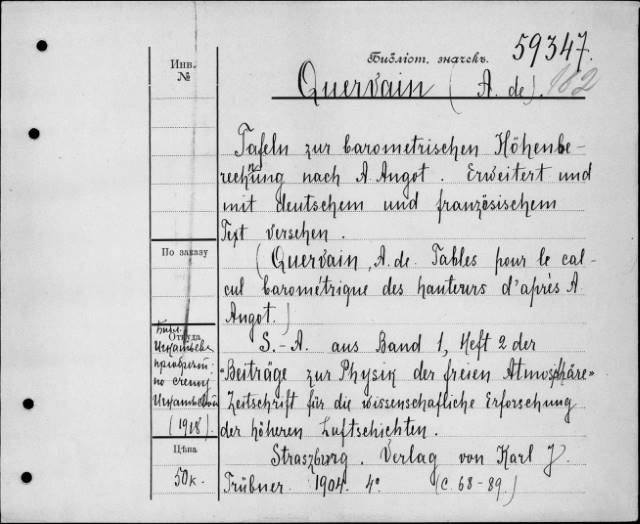 Библіот. значекъ. 59347.
Инв. №
Quervain (A. de). 182
Tafeln zur barometrischen Höhenbe-
rechnung nach A Angot. Erweitert und
mit deutschem und französischem
Text versehen.
По заказу
(Quervain, A. de. Tables pour le cal-
cul barométrique des hauteurs d'après A.
Angot.)
Откуда
S.-A. aus Band 1, Heft 2 der
"Beiträge zur Physik der freien Atmosphäre"
Zeitschrift für die wissenschafliche Erforschung
der höheren Luftschichten.
по счету
(1918)
Цѣна
50к.
Straszburg. Verlag von Karl J.
Trübner. 1904. 4°. (С. 68-89.)